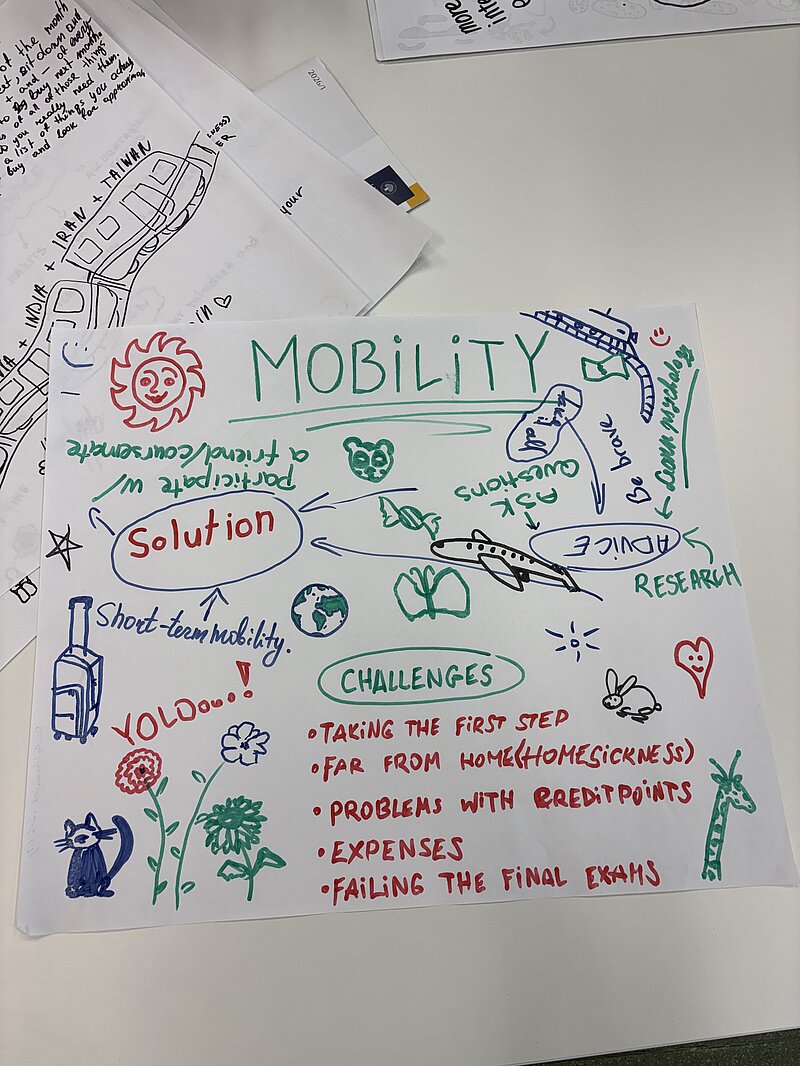 more
of the month
sit down and
buy next month
of all of those things
you really need them
a list of things you
buy and look for
2026/1
your
+ INDIA + IRAN + TAIWAN
MOBiLiTY
participate w/
a friend/coursemate
Solution
Short-term mobility.
YOLOoo..!
ASK
Questions
Be brave
Learn psychology
ADVICE
RESEARCH
CHALLENGES
•TAKING THE FIRST STEP
•FAR FROM HOME(HOMESICKNESS)
•PROBLEMS WITH CREDITPOINTS
•EXPENSES
•FAILING THE FINAL EXAMS